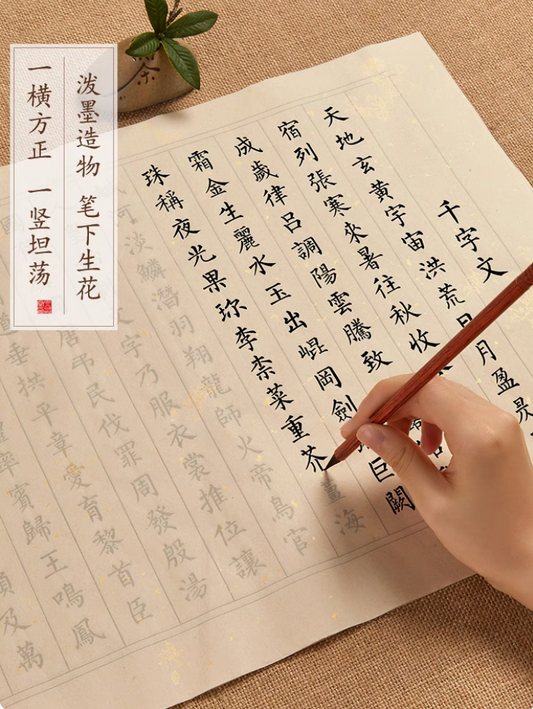 泼墨造物 笔下生花
一横方正 一竖坦荡
千字文
天地玄黃宇宙洪荒日月盈昃
宿列張寒來暑往秋收
成歲律呂調陽雲騰致
霜金生麗水玉出崐岡劍巨闕
珠稱夜光果珎李柰菜重芥薑海
河淡鱗潛羽翔龍師火帝鳥官
文字乃服衣裳推位讓
唐弔民伐罪周發殷湯
垂拱平章愛育黎首臣
賓歸王鳴鳳
及萬